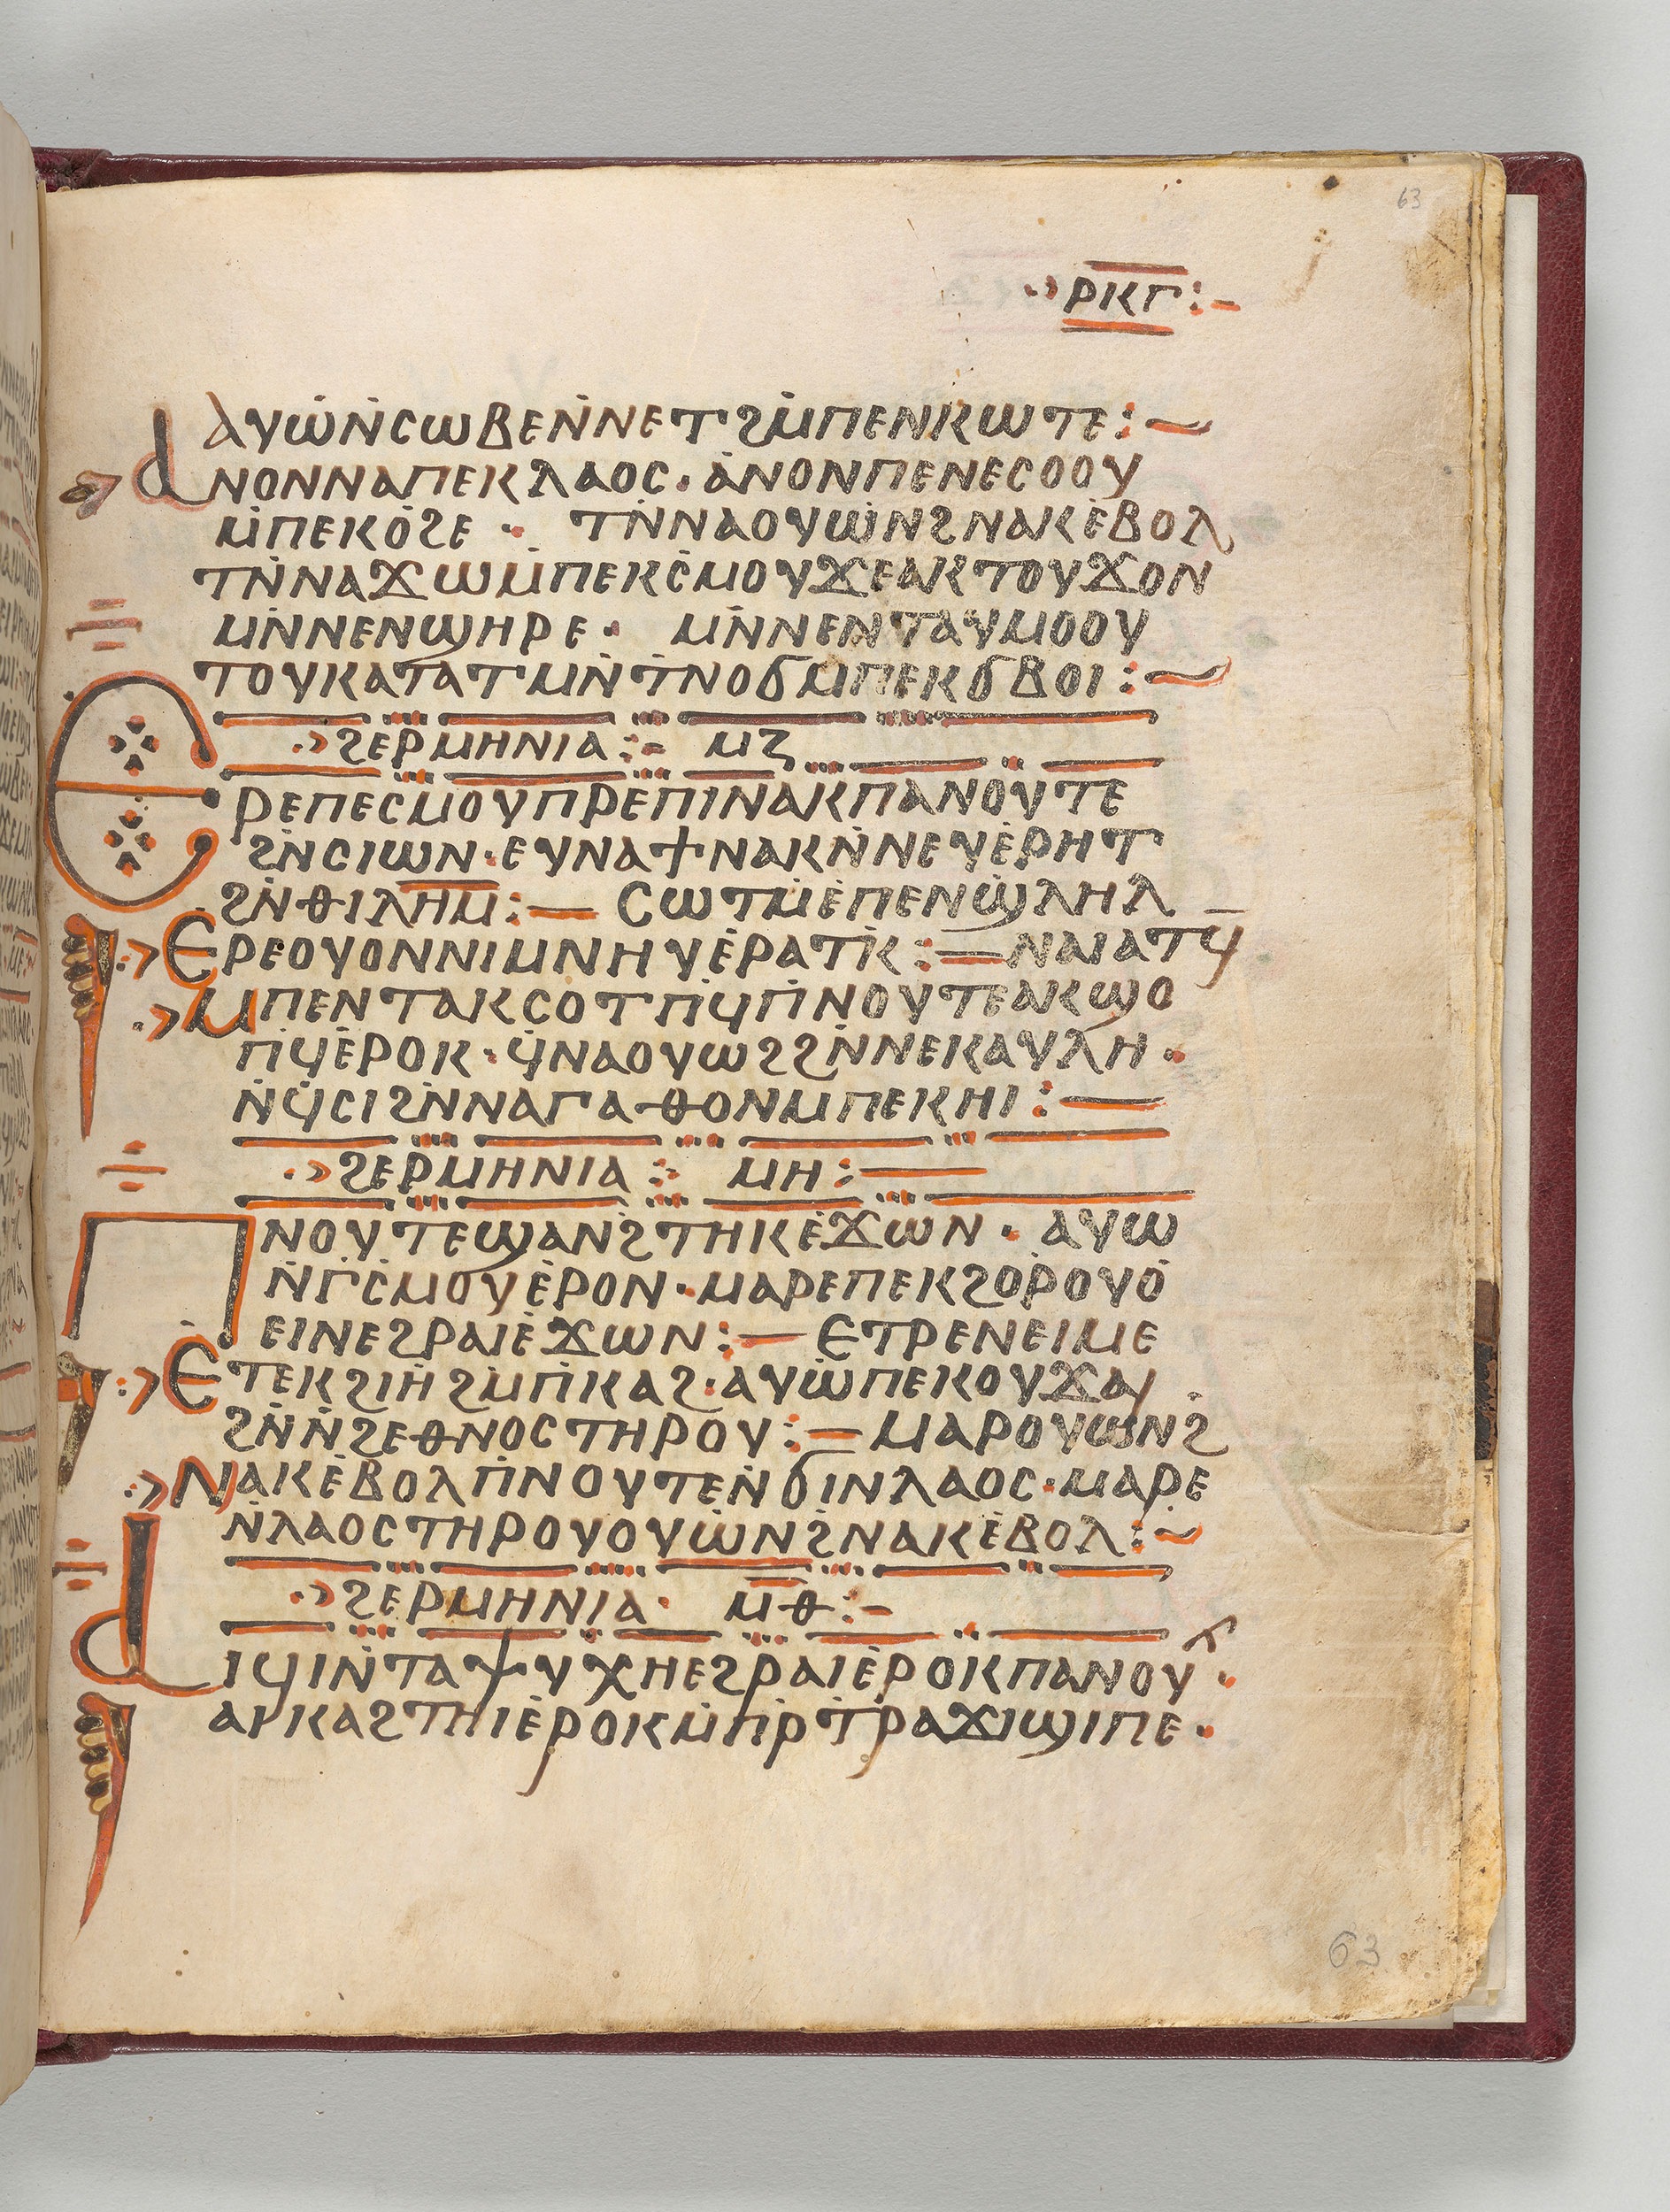 63
ⲣⲕⲅ
ⲁⲩⲱ̇ⲛ̇ⲥⲱⲃⲉⲛ̇ⲛⲉⲧϩⲙ̇ⲡⲉⲛⲕⲱⲧⲉ:—
ⲁⲛⲟⲛⲛⲁⲡⲉⲕⲗⲁⲟⲥ· ⲁ̇ⲛⲟⲛⲡⲉⲛⲉⲥⲟⲟⲩ
ⲙ̇ⲡⲉⲕⲟ̇ϩⲉ · ⲧⲛ̇ⲛⲁⲟⲩⲱ̇ⲛϩⲛⲁⲕⲉ̇ⲃⲟⲗ
ⲧⲛ̇ⲛⲁϫⲱⲙ̇ⲡⲉⲕⲥ̇ⲙⲟⲩϫⲉⲁⲕⲧⲟⲩϫⲟⲛ
ⲙⲛ̇ⲛⲉⲛϣⲏⲣⲉ· ⲙⲛ̇ⲛⲉⲛⲧⲁⲩⲙⲟⲟⲩ
ⲧⲟⲩⲕⲁⲧⲁⲧⲙⲛ̇ⲧ̇ⲛⲟϭⲙ̇ⲡⲉⲕϭⲃⲟⲓ:—
ϩⲉⲣⲙⲏⲛⲓⲁ:- ⲙⲍ
ⲉⲣⲉⲡⲉⲥⲙⲟⲩⲡⲣⲉⲡⲓⲛⲁⲕⲡⲁⲛⲟⲩⲧⲉ
ϩⲛ̇ⲥⲓⲱⲛ·ⲉⲩⲛⲁϯⲛⲁⲕⲛ̇ⲛⲉⲩⲉ̇ⲣⲏⲧ
ϩⲛ̇ⲑⲓⲗ̅ⲏ̅ⲙ̅:— ⲥⲱⲧⲙ̇ⲉ̇ⲡⲉⲛϣ̇ⲗⲏⲗ
ⲉⲣⲉⲟⲩⲟⲛⲛⲓⲙⲛⲏⲩⲉ̇ⲣⲁⲧⲕ̇:—ⲛⲁⲓⲁⲧϥ̅
ⲙⲡⲉⲛⲧⲁⲕⲥⲟⲧⲡ̇ϥⲡ̇ⲛⲟⲩⲧⲉⲁⲕϣⲟ
ⲡ̇ϥⲉ̇ⲣⲟⲕ·ϥ̇ⲛⲁⲟⲩⲱϩϩⲛ̇ⲛⲉⲕⲁⲩⲗⲏ·
ⲛ̇ϥ̇ⲥⲓϩⲛ̇ⲛⲁⲅⲁⲑⲟⲛⲙⲡⲉⲕⲏⲓ:—
ϩⲉⲣⲙⲏⲛⲓⲁ: ⲙⲏ:—
ⲡⲛⲟⲩⲧⲉϣⲁⲛϩⲧⲏⲕⲉ̇ϫⲱⲛ· ⲁⲩⲱ
ⲛ̇ⲅ̇ⲥ̇ⲙⲟⲩⲉ̇ⲣⲟⲛ·ⲙⲁⲣⲉⲡⲉⲕϩⲟ̇ⲣ̇ⲟⲩⲟ̇
ⲉⲓⲛⲉϩⲣⲁⲓⲉ̇ϫⲱⲛ:— ⲉⲧⲣⲉⲛⲉⲓⲙⲉ
ⲉ̇ⲧⲉⲕϩⲓⲏ̇ϩⲙ̇ⲡ̇ⲕⲁϩ·ⲁⲩⲱ̇ⲡⲉⲕⲟⲩϫⲁⲓ
ϩⲛ̇ⲛ̇ϩⲉⲑⲛⲟⲥⲧⲏⲣⲟⲩ:—ⲙⲁⲣⲟⲩⲱⲛϩ
ⲛⲁⲕⲉ̇ⲃⲟⲗⲡ̇ⲛⲟⲩⲧⲉⲛ̇ϭⲓⲛⲗⲁⲟⲥ·ⲙⲁⲣⲉ
ⲛ̇ⲗⲁⲟⲥⲧⲏⲣⲟⲩⲟⲩⲱ̇ⲛϩ̇ⲛⲁⲕⲉ̇ⲃⲟⲗ:~
ϩⲉⲣⲙⲏⲛⲓⲁ· ⲙ̅ⲑ:-
ⲁⲓϥⲓⲛ̇ⲧⲁⲯⲩⲭⲏⲉϩⲣⲁⲓⲉ̇ⲣⲟⲕⲡⲁⲛⲟⲩⲧ·
ⲁⲓⲕⲁϩⲧⲏⲓⲉ̇ⲣⲟⲕⲙ̇ⲡ̇ⲣⲧ̇ⲣⲁϫⲓϣⲓⲡⲉ·
63